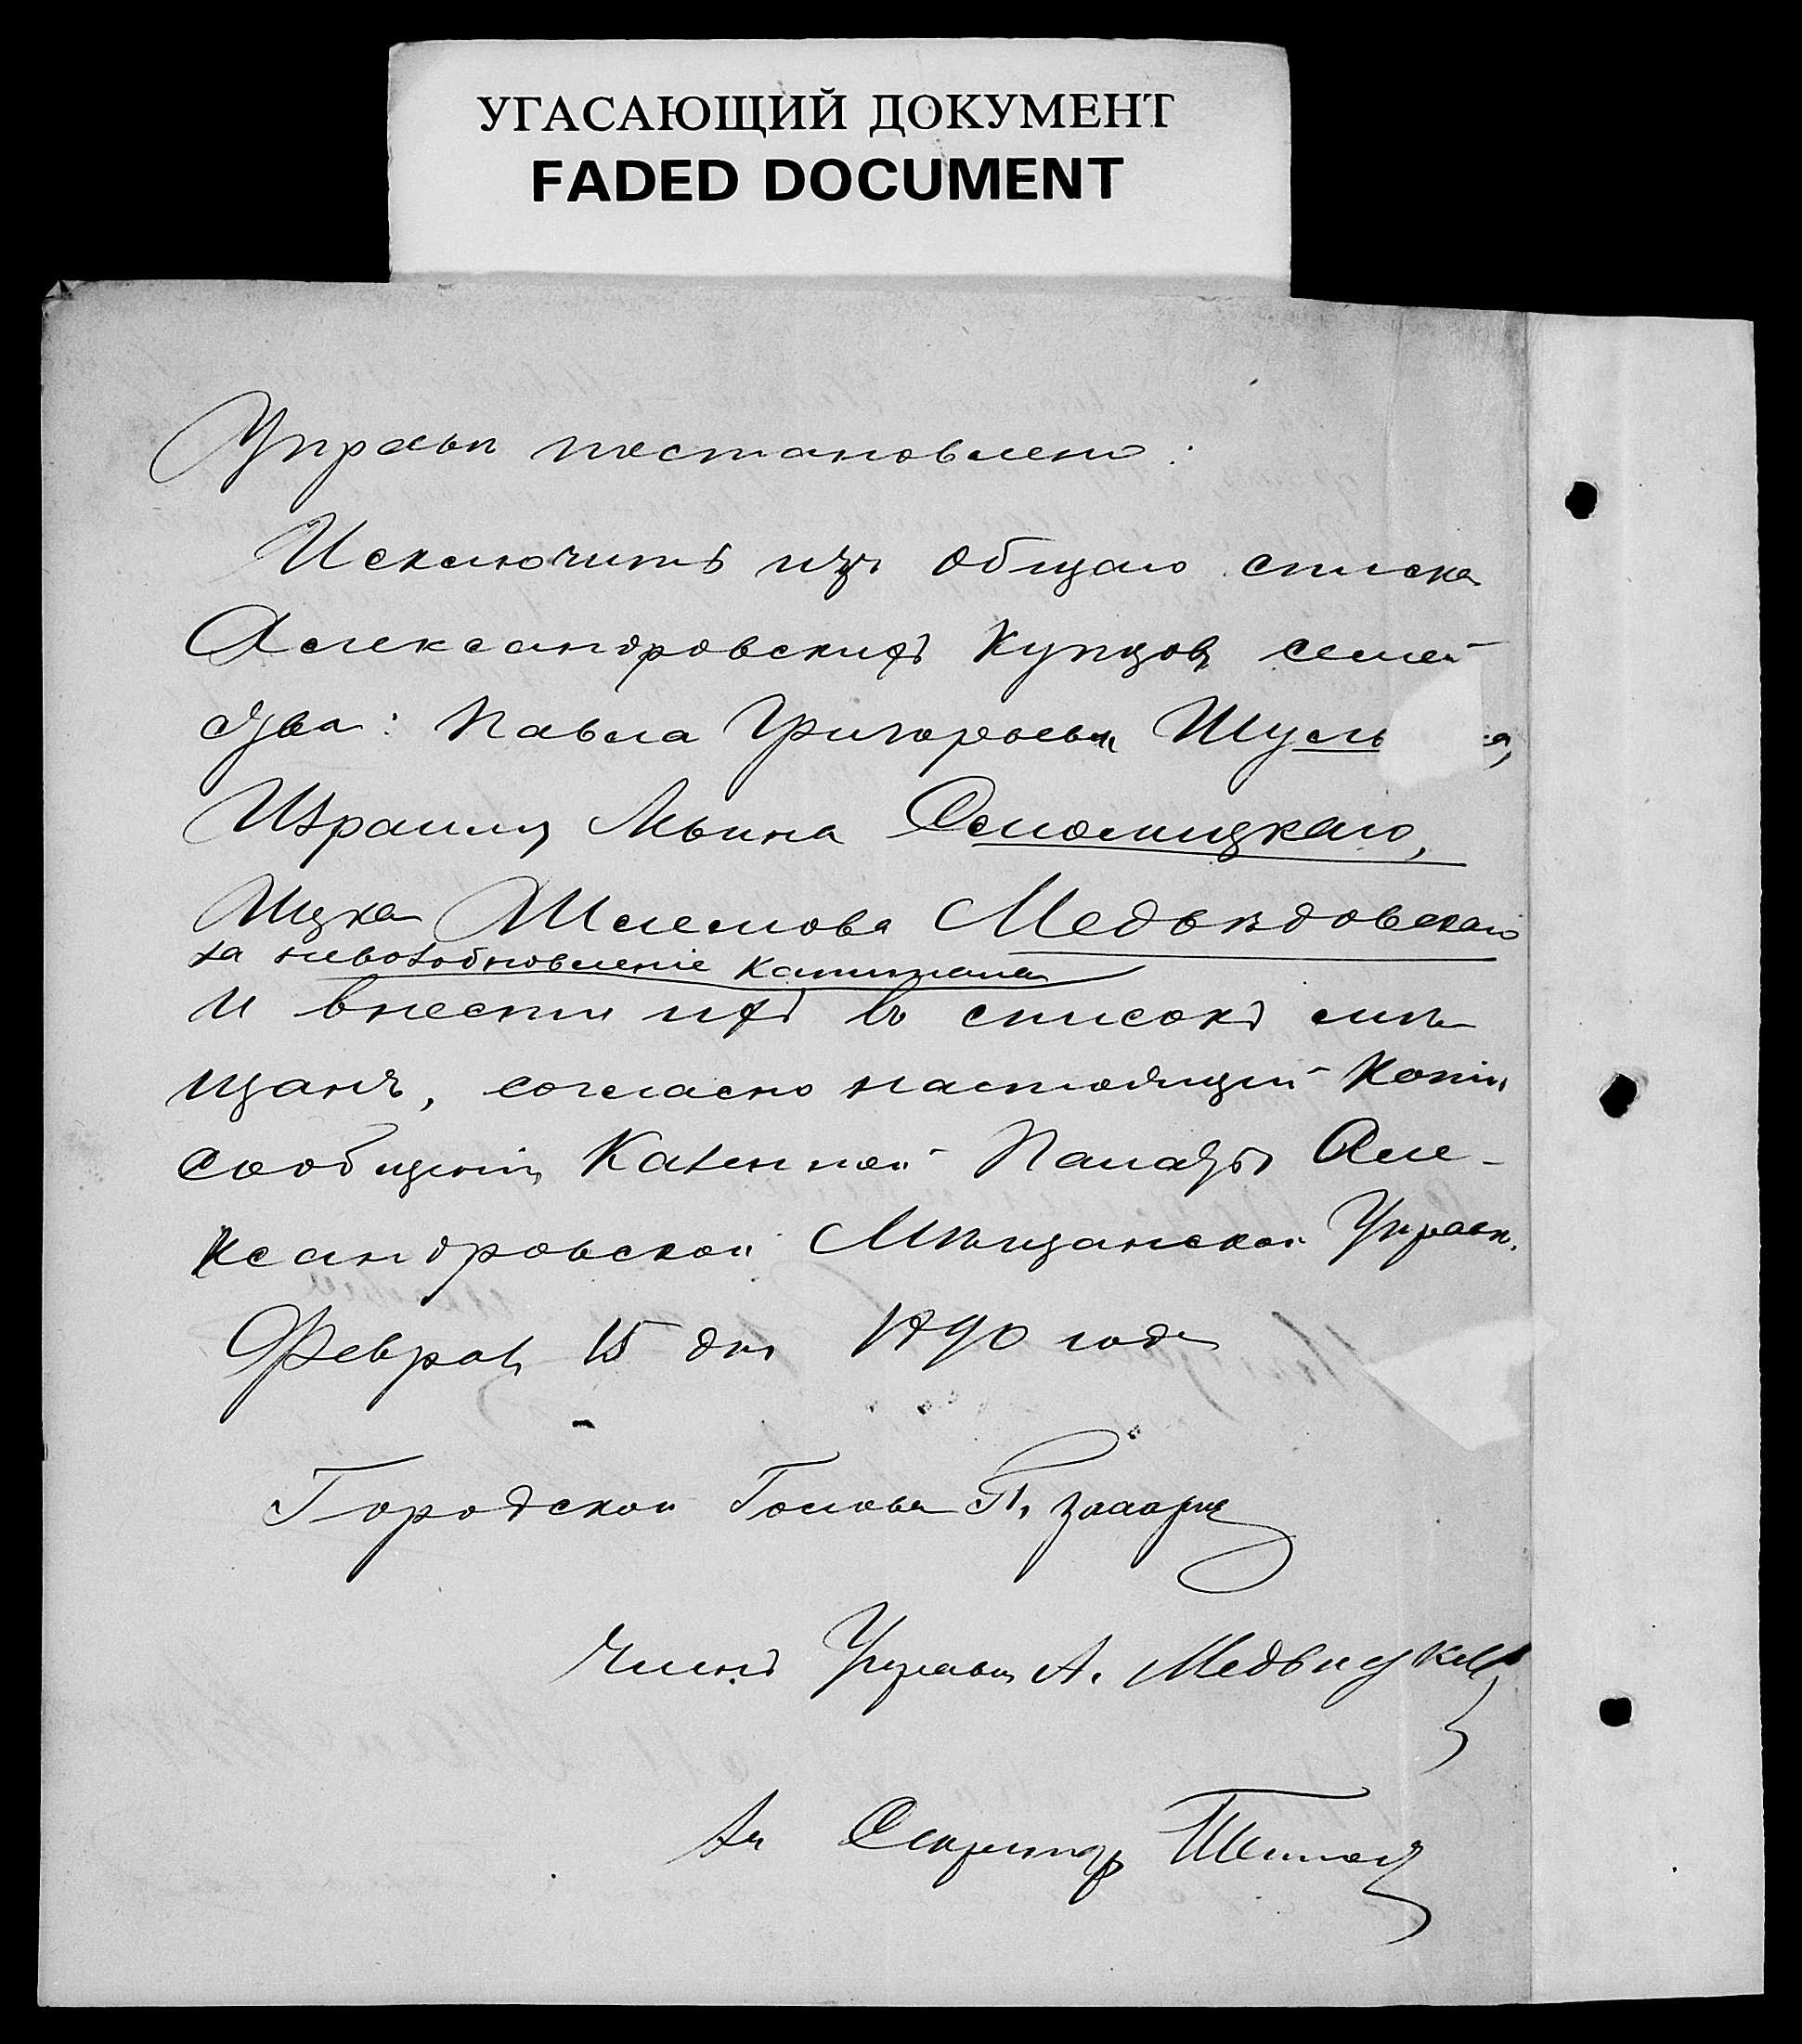 УГАСАЮЩИЙ ДОКУМЕНТ
FADED DOCUMENT
Управы постановлено:
Исключить изъ общаго списка
Александровскихъ купцовъ семей
ства: Павла Григорьева Шуль
Израиля Львина Смолицкаго,
Ицка Шлемова Медвѣдовскаго
за невозобновленіе капитала
и внести ихъ въ списокъ мѣ
щанъ, согласно настоящей копіи
сообщенія Казенной Палаты Але-
ксандровской Мѣщанской Управѣ.
Февраля 15 дня 1890 года
Городской Голова П.
Членъ Управы А.
За Секретаря